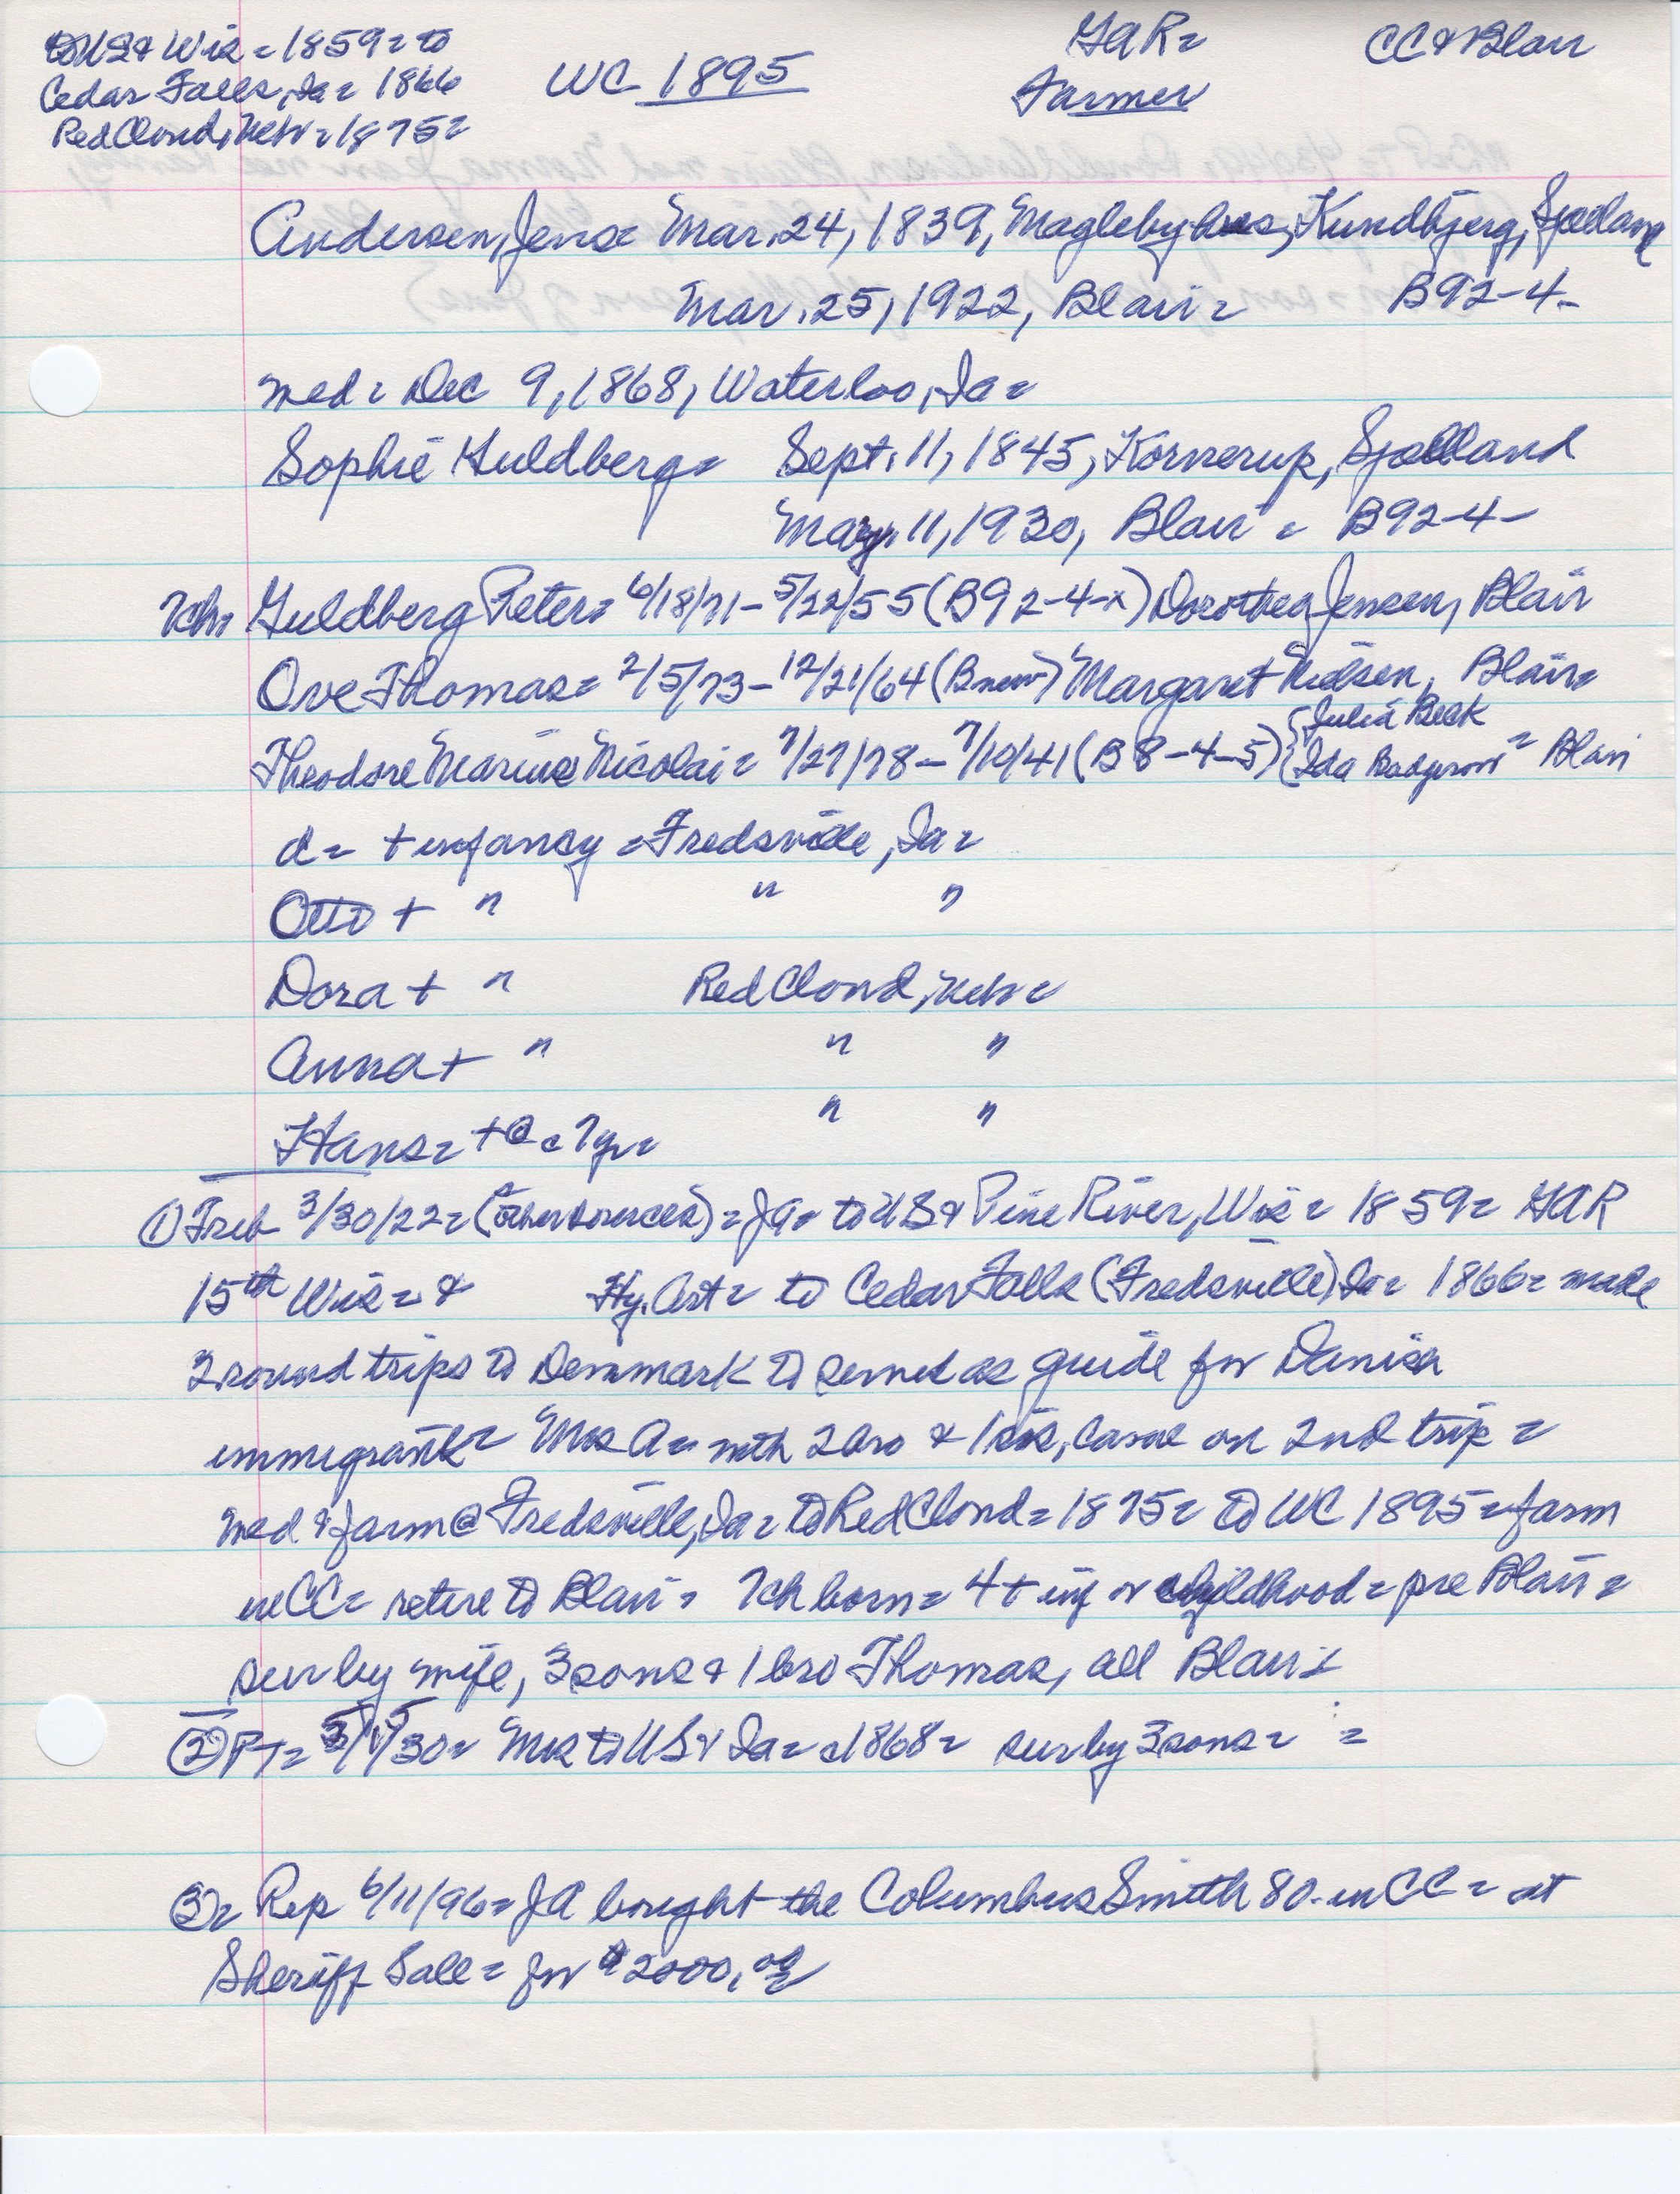 to US & Wis = 1859 = to
Cedar Falls, Ia = 1866
Red Cloud, Neb = 1875 =
WC 1895
GAR =
Farmer
CC & Blair
Andersen, Jens = Mar. 24, 1839, Maglebyhuus, Kundbjerg, Sjælland
Mar. 25, 1922, Blair = B92-4-
med = Dec 9, 1868, Waterloo, Ia =
Sophie Guldberg = Sept. 11, 1845, Kornerup, Sjælland
May 11, 1930, Blair = B92-4-
7ch = Guldberg Peter = 6/18/71 - 5/22/55 (B92-4-x) Dorothea Jensen, Blair
Ove Thomas = 2/5/73 - 12/21/64 (B new) Margaret Nielsen, Blair =
Theodore Marius Nicolai = 7/27/78 - 7/10/41 (B8-4-5) { Julia Beck
{ Ida Badgerow = Blair
d = + infancy = Fredsville, Ia =
Otto + " " "
Dora + " Red Cloud, Neb =
Anna + " " "
Hans = + @ c 7yr = " "
① Trib 3/30/22 = (& other sources) = JA = to US & Pine River, Wis = 1859 = GAR
15th Wis = & Hy. Art = to Cedar Falls (Fredsville) Ia = 1866 = made
3 round trips to Denmark to served as guide for Danish
immigrants = Mrs A = with 2 bro & 1 sis, came on 2nd trip =
med & farm @ Fredsville, Ia = to Red Cloud = 1875 = to WC 1895 = farm
in CC = retire to Blair = 7ch born = 4 + inf or childhood = pre Blair =
sur by wife, 3 sons & 1 bro Thomas, all Blair =
② PT = 5/15/30 = Mrs to US & Ia = c1868 = sur by 3 sons = =
③ = Rep 6/11/96 = JA bought the Columbus Smith 80. in CC = at
Sheriff Sale = for $2000.00